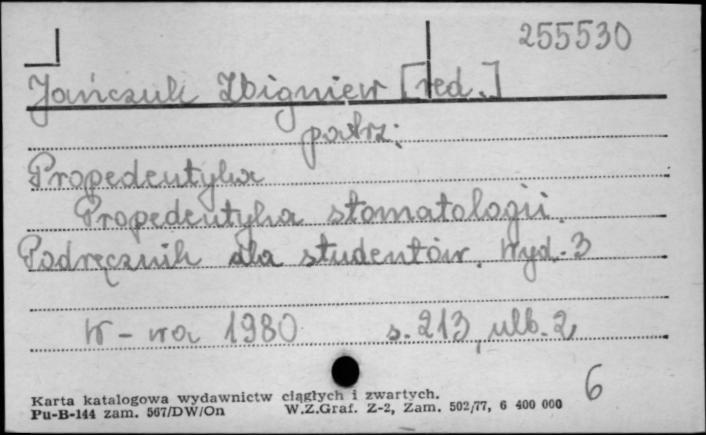 255530
Jańczuk Zbigniew [red.]
patrz:
Propedeutyka
Propedeutyka stomatologii.
Podręcznik dla studentów. Wyd. 3
W-wa 1980 s. 213, ulb. 2
6
Karta katalogowa wydawnictw ciągłych i zwartych.
Pu-B-144 zam. 567/DW/On W.Z.Graf. Z-2, Zam. 502/77, 6 400 000